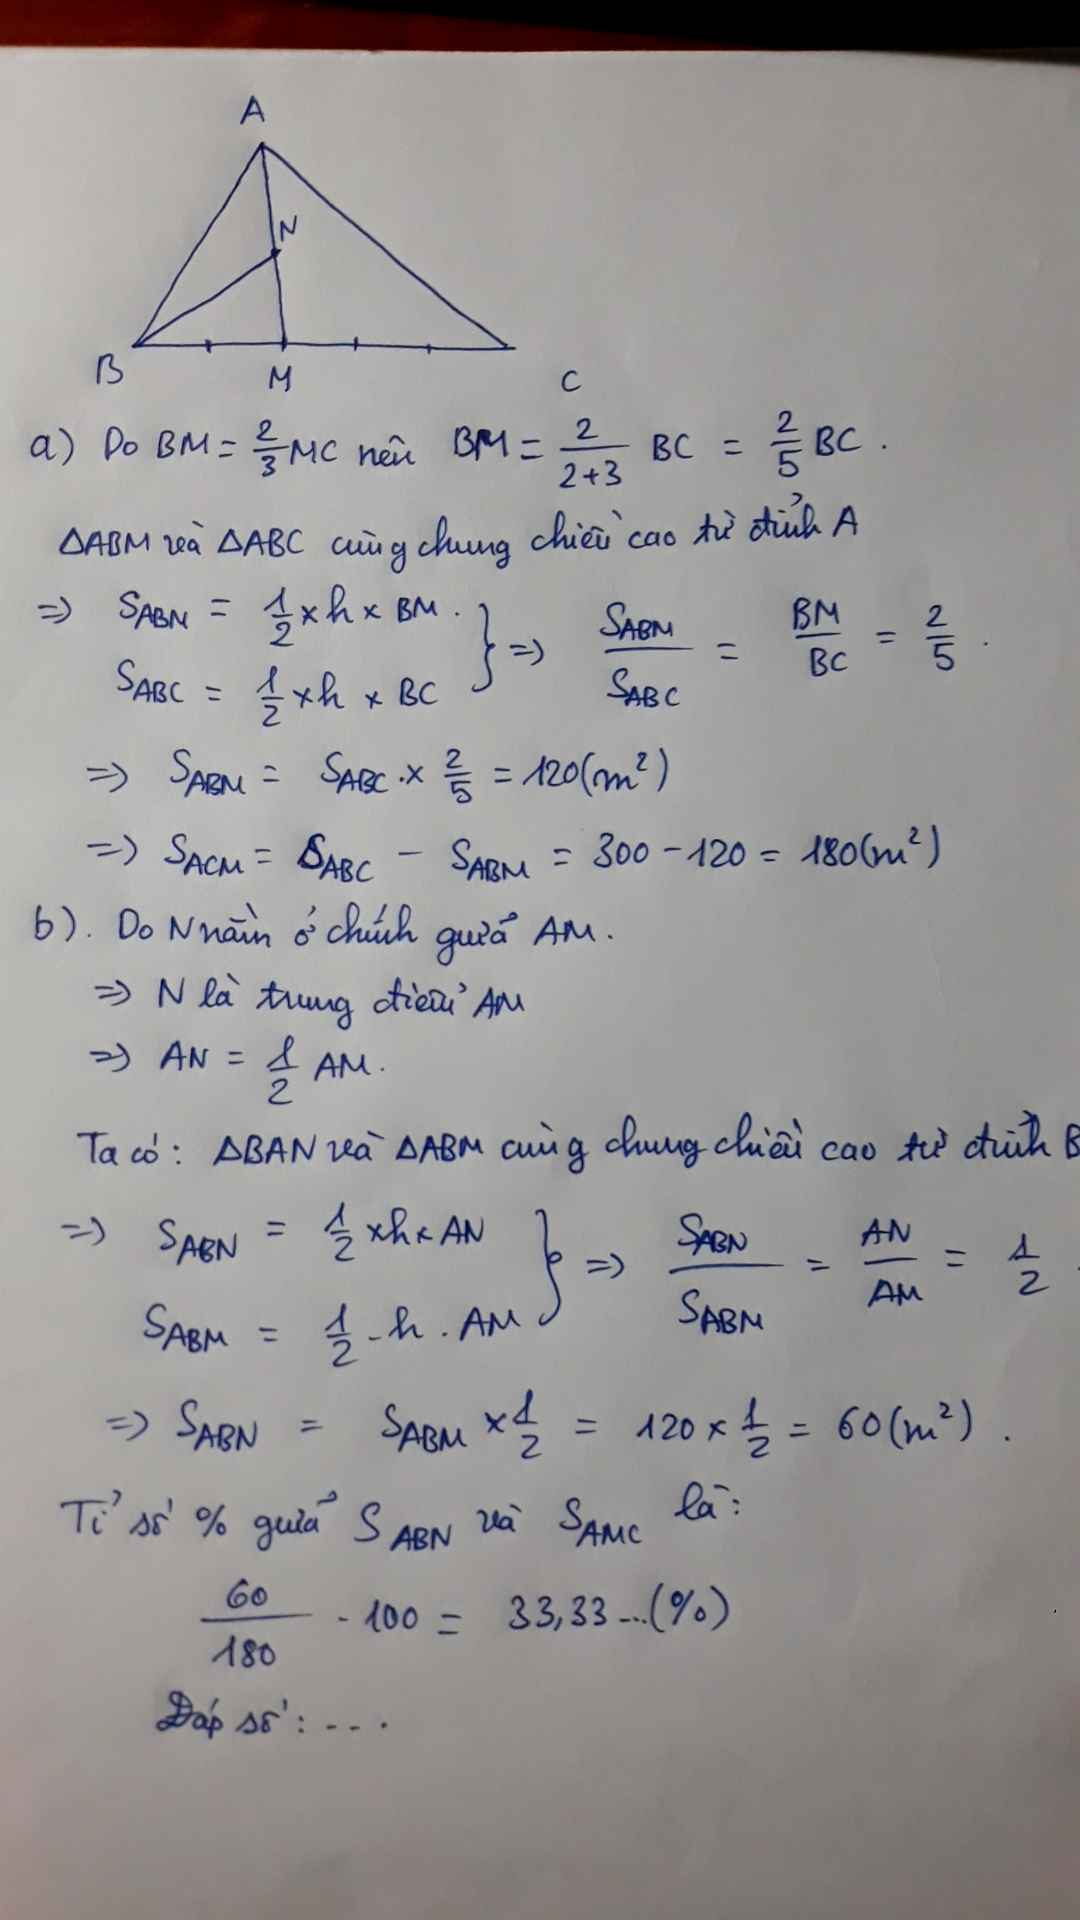 A
N
B M C
a) Do BM = 2/3 MC nên BM = 2/(2+3) BC = 2/5 BC.
ΔABM và ΔABC cùng chung chiều cao từ đỉnh A
=> S_ABM = 1/2 × h × BM. } => S_ABM/S_ABC = BM/BC = 2/5.
S_ABC = 1/2 × h × BC
=> S_ABM = S_ABC . × 2/5 = 120(m²)
=> S_ACM = S_ABC - S_ABM = 300 - 120 = 180(m²)
b). Do N nằm ở chính giữa AM.
=> N là trung điểm AM
=> AN = 1/2 AM.
Ta có: ΔBAN và ΔABM cùng chung chiều cao từ đỉnh B
=> S_ABN = 1/2 × h × AN } => S_ABN/S_ABM = AN/AM = 1/2.
S_ABM = 1/2 . h . AM
=> S_ABN = S_ABM × 1/2 = 120 × 1/2 = 60(m²).
Tỉ số % giữa S_ABN và S_AMC là:
60/180 . 100 = 33,33...(%)
Đáp số: ....